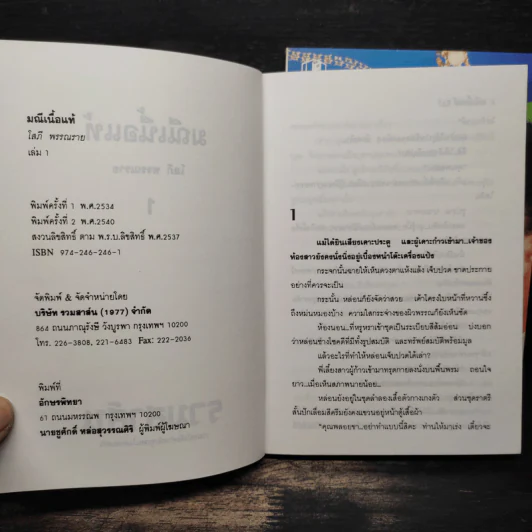 มณีเนื้อแท้
โสภี พรรณราย
เล่ม 1
พิมพ์ครั้งที่ 1 พ.ศ.2534
พิมพ์ครั้งที่ 2 พ.ศ.2540
สงวนลิขสิทธิ์ ตาม พ.ร.บ.ลิขสิทธิ์ พ.ศ.2537
ISBN 974-246-246-1
จัดพิมพ์ & จัดจำหน่ายโดย
บริษัท รวมสาส์น (1977) จำกัด
864 ถนนภาณุรังษี วังบูรพา กรุงเทพฯ 10200
โทร. 226-3808, 221-6483 Fax: 222-2036
พิมพ์ที่
อักษรพิทยา
61 ถนนมหรรณพ กรุงเทพฯ 10200
นายชูศักดิ์ หล่อสุวรรณศิริ ผู้พิมพ์ผู้โฆษณา
1
แม้ได้ยินเสียงเคาะประตู และผู้เคาะก้าวเข้ามา...เจ้าของ
ห้องสาวยังคงนั่งนิ่งอยู่เบื้องหน้าโต๊ะเครื่องแป้ง
กระจกนั้นฉายให้เห็นดวงตาแห้งแล้ง เจ็บปวด ขาดประกาย
อย่างที่ควรจะเป็น
กระนั้น หล่อนก็ยังจัดว่าสวย เค้าโครงใบหน้าที่หวานซึ้ง
ถึงหม่นหมองบ้าง ความใสกระจ่างของผิวพรรณก็ยังเห็นชัด
ห้องนอน..ที่หรูหราเข้าชุดเป็นระเบียบสีส้มอ่อน บ่งบอก
ว่าหล่อนช่างโชคดีที่มีทั้งรูปสมบัติ และทรัพย์สมบัติพร้อมมูล
แล้วอะไรที่ทำให้หล่อนเจ็บปวดได้เล่า?
พี่เลี้ยงสาวผู้ก้าวเข้ามาทรุดกายลงนั่งบนพื้นพรม ถอนใจ
ยาว...เมื่อเห็นสภาพนายน้อย..
หล่อนยังอยู่ในชุดลำลองเสื้อตัวกางบางตัว ส่วนชุดราตรี
สั้นปักเลื่อมสีครีมยังคงแขวนอยู่หน้าตู้เสื้อผ้า
"คุณพลอยขา..อย่าทำแบบนี้สิคะ ท่านให้มาเร่ง เดี๋ยวจะ